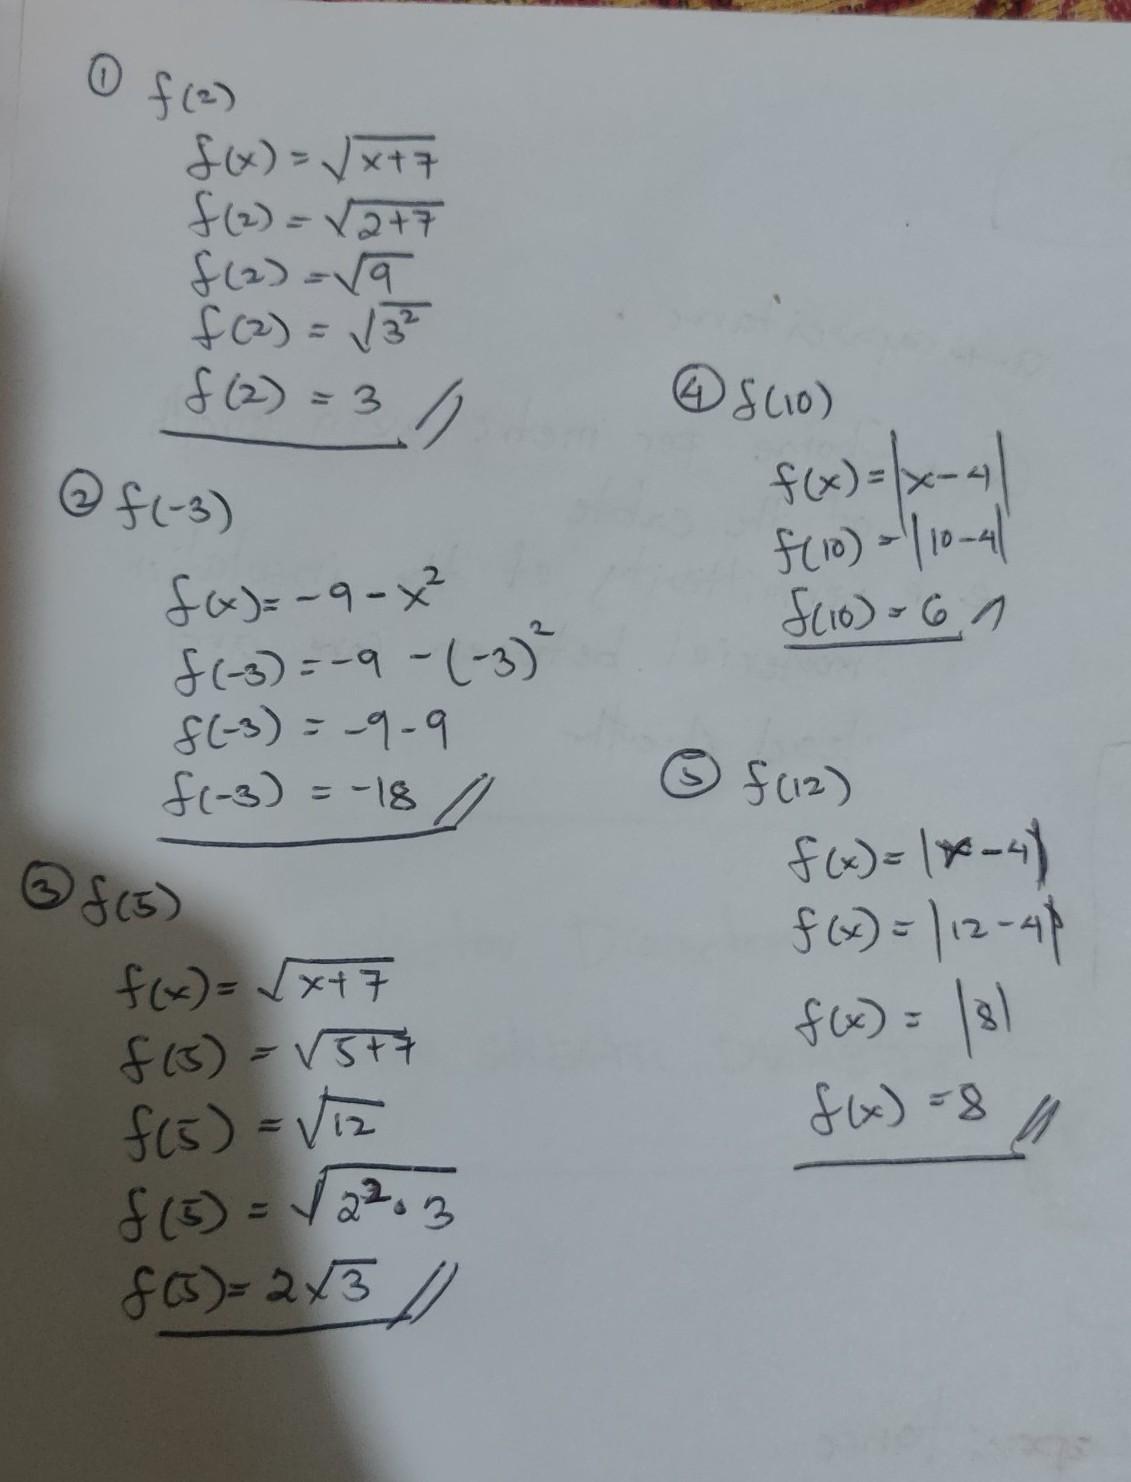 ① f(2)
f(x) = √(x+7)
f(2) = √(2+7)
f(2) = √9
f(2) = √3²
f(2) = 3
② f(-3)
f(x) = -9 - x²
f(-3) = -9 - (-3)²
f(-3) = -9 - 9
f(-3) = -18
③ f(5)
f(x) = √(x+7)
f(5) = √(5+7)
f(5) = √12
f(5) = √(2² · 3)
f(5) = 2√3
④ f(10)
f(x) = |x-4|
f(10) = |10-4|
f(10) = 6
⑤ f(12)
f(x) = |x-4|
f(x) = |12-4|
f(x) = |8|
f(x) = 8